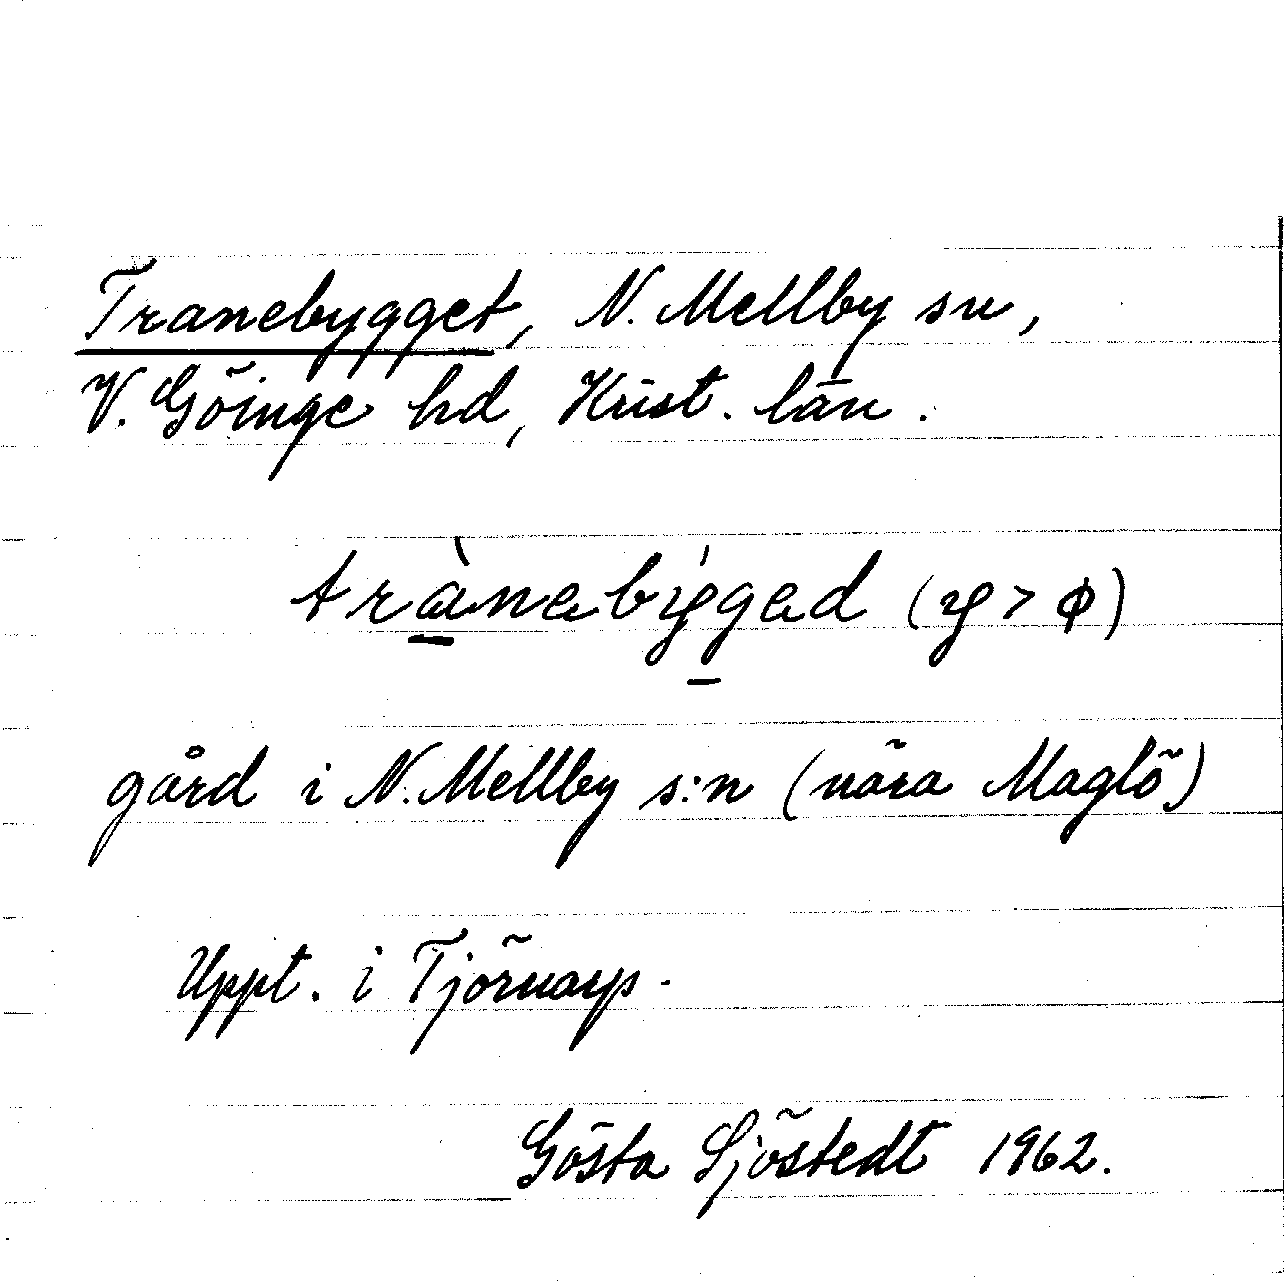 Tranebygget, N. Mellby sn,
V. Göinge hd, Krist. län.
trànebýgged (y > ø)
gård i N. Mellby s:n (nära Maglö)
Uppt. i Tjörnarp.
Gösta Sjöstedt 1962.